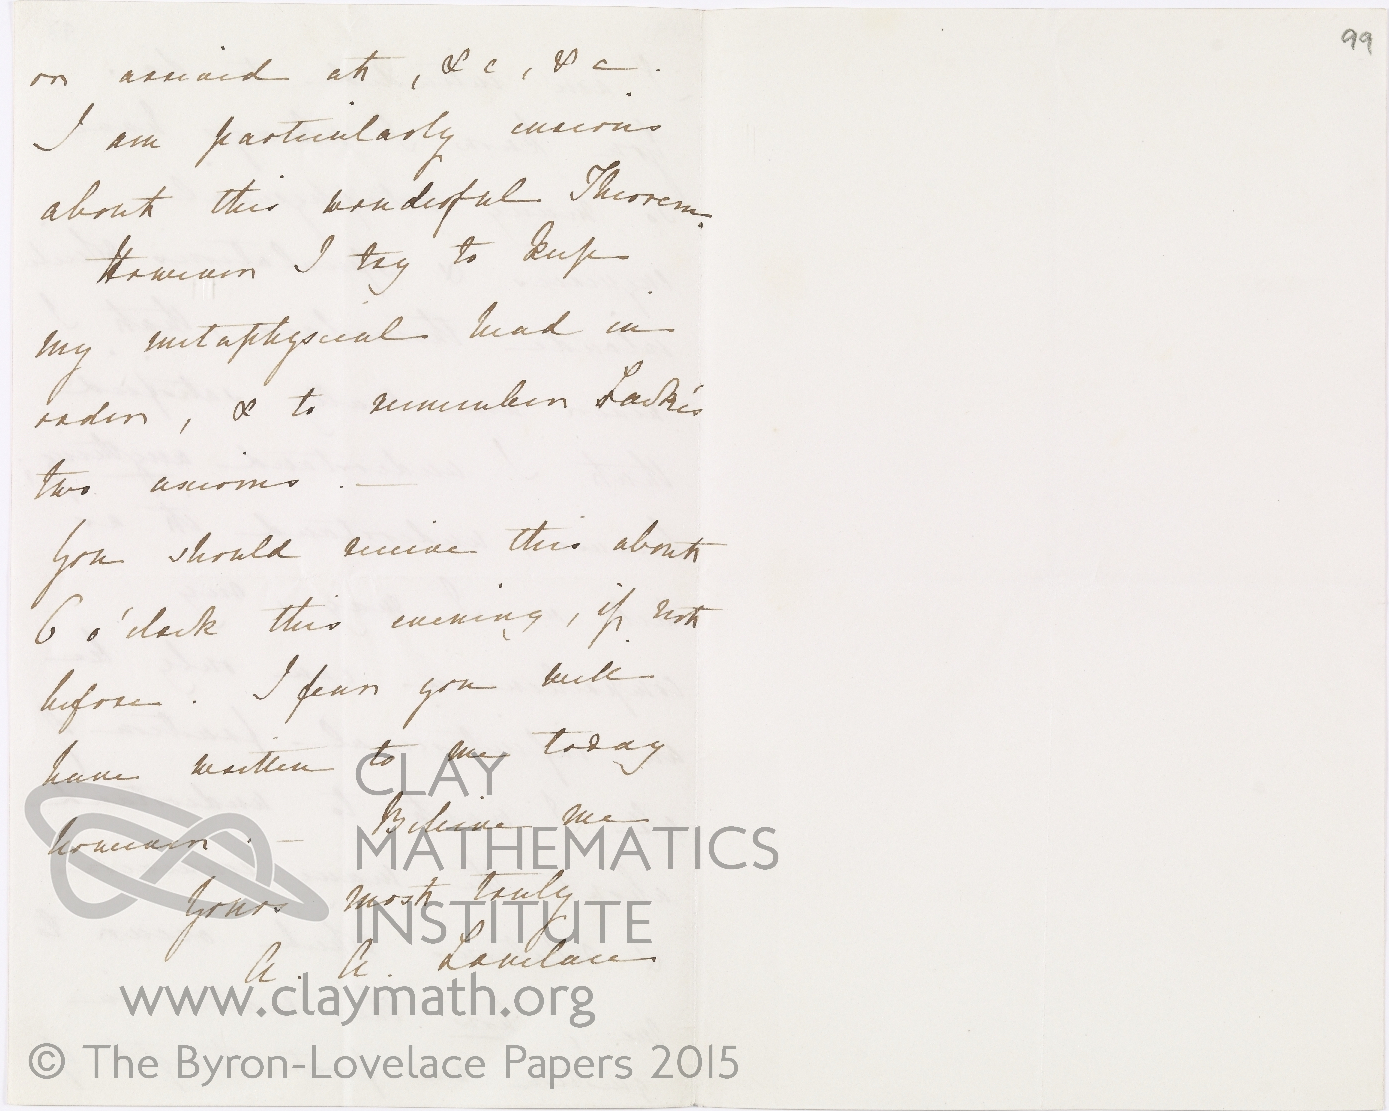 99
or arrived at, &c, &c.
I am particularly curious
about this wonderful Theorem.
However I try to keep
my metaphysical head in
order, & to remember Locke's
two axioms. —
You should receive this about
6 o'clock this evening, if not
before. I fear you will
have written to me today
however. — Believe me
Yours most truly
A. A. Lovelace
CLAY
MATHEMATICS
INSTITUTE
www.claymath.org
© The Byron-Lovelace Papers 2015